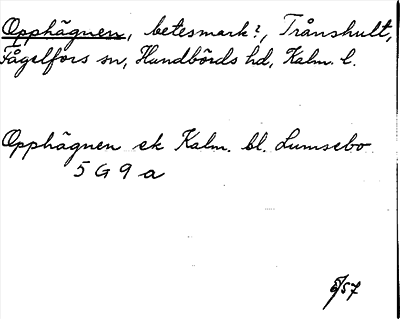 Opphägnen, betesmark?, Trånshult,
Fågelfors sn, Handbörds hd, Kalm. l.
Opphägnen ek Kalm. bl. Lumsebo
5 G 9 a
/57